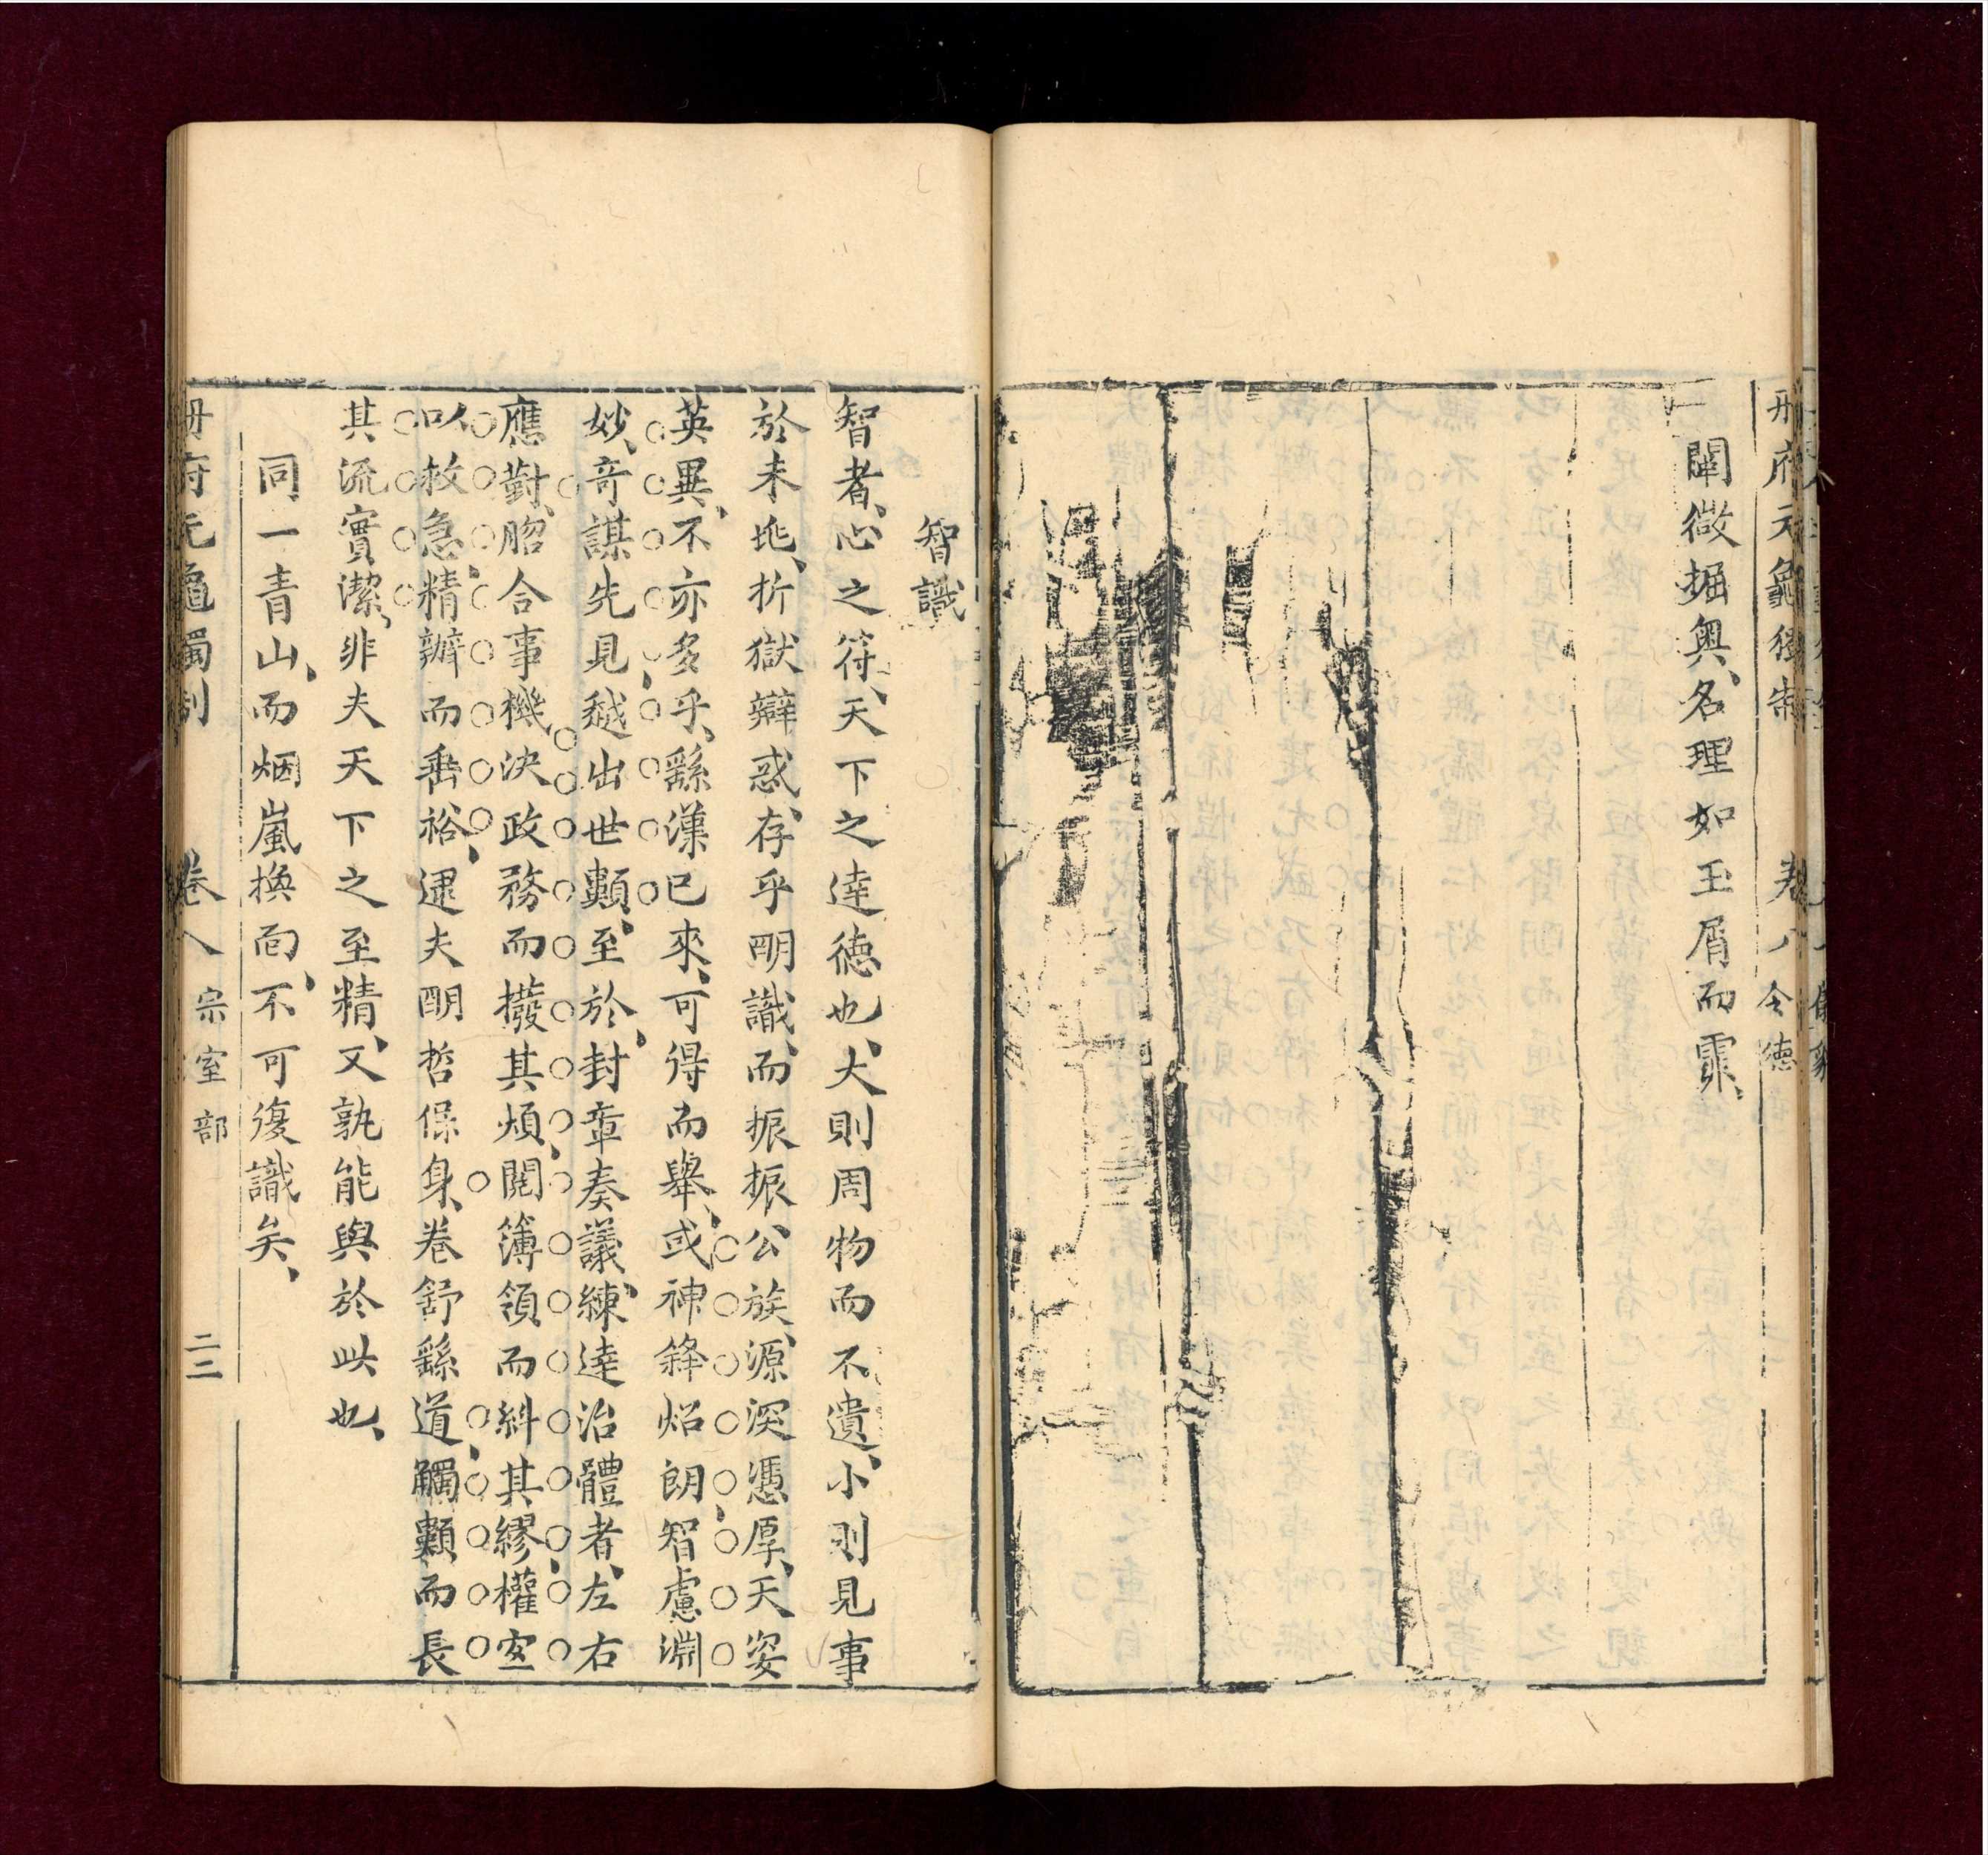 冊府元龜獨制　卷八　全德
闡微掘奧、名理如玉屑而霏、
智識
智者、心之符、天下之達德也、大則周物而不遺、小則見事
於未兆、折獄辯惑、存乎明識、而振振公族、源深憑厚、天姿
英異、不亦多乎、繇漢已來、可得而舉、或神鋒炤朗、智慮淵
妙、奇謀先見、越出世類、至於封章奏議、練達治體者、左右
應對、脗合事機、決政務而撥其煩、閱簿領而糾其繆、權宜
以救急、精辨而垂裕、逮夫明哲保身、卷舒繇道、觸類而長
其流實潔、非夫天下之至精、又孰能與於此也、
同一青山、而烟嵐換面、不可復識矣、
冊府元龜獨制　卷八　宗室部　二二